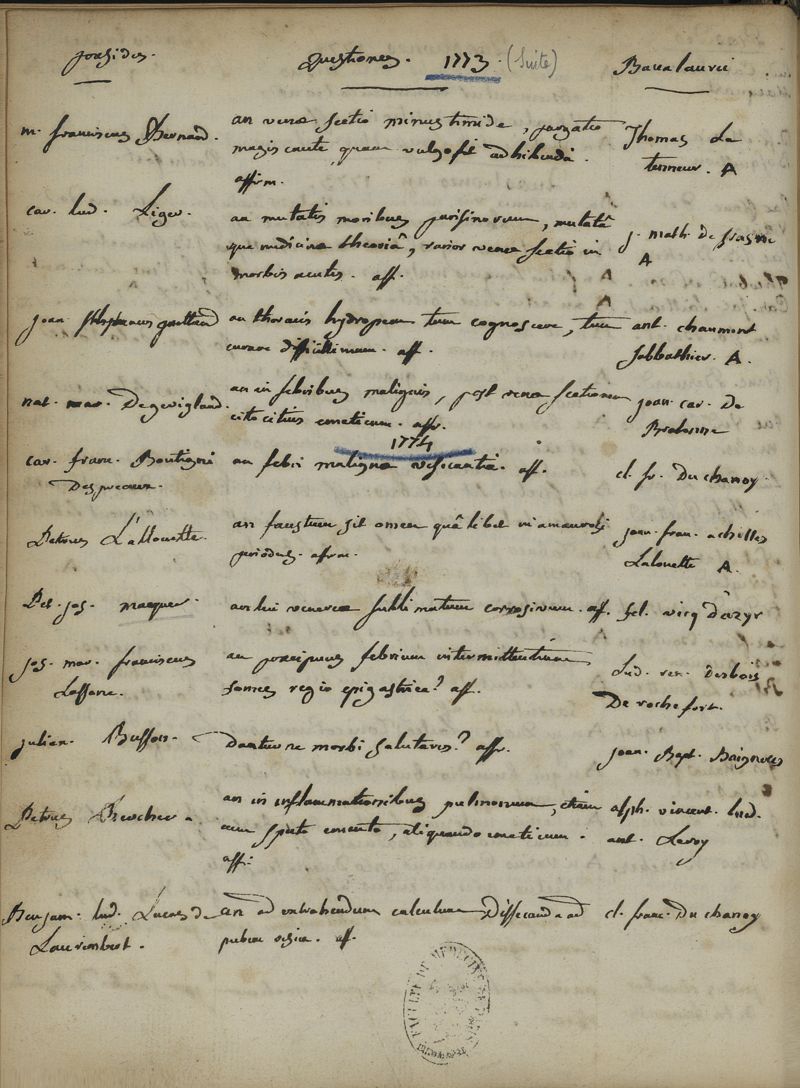 praesides. questiones. 1773. (suite) Baccalaurei
m. franciscus Bernard. an venae sectio minus timide, purgatio Thomas Le
magis caute quam vulgo fit adhibenda. tenneur. A
affirm.
car. lud. Liger. an mutatis moribus parisinorum, mutatâ
que medicinae theoriâ, rarior venae sectio in j. math. de
morbis acutis. aff. A
joan. an thoracis hydropem tum cognoscere, tum ant. chaumont
curare difficillimum. aff. Sabbathier. A.
nat. mar. De gevigland. an in febribus malignis, post venae sectionem joan. car. De
cito citius emeticum. aff.
1774
car. franc. Boutigni an febri malignae vesicantia. aff. cl. fr. Duchanoy.
Despreaux.
Petrus L'allouette. an faustum sit omen quâlibet in a
periodus. affirm. joan. fran. achilles
Lalouette A.
Pet. jos. macquer. an lui venereae sublimatum corrosivum. aff. fel. vicq d'azyr
jos. mar. franciscus an praecipuus febrium intermittentium Lud. ren. Desbois
Lassone. fomes regio epigastrica? aff. De rochefort.
julian. Busson. Dantur ne morbi salutares? aff. joan. Bapt.
Petrus Bercher. an in inflammationibus pulmonum, etiam alph. vincent. lud.
cum sputo cruento, aliquando emeticum. ant. Leroy
aff.
Benjam. lud. Lucas de an ad extrahendum calculum dissecanda ad cl. franc. Duchanoy
Laurembert. pubem vesica. aff.
FACULTÉ DE MÉDECINE DE PARIS